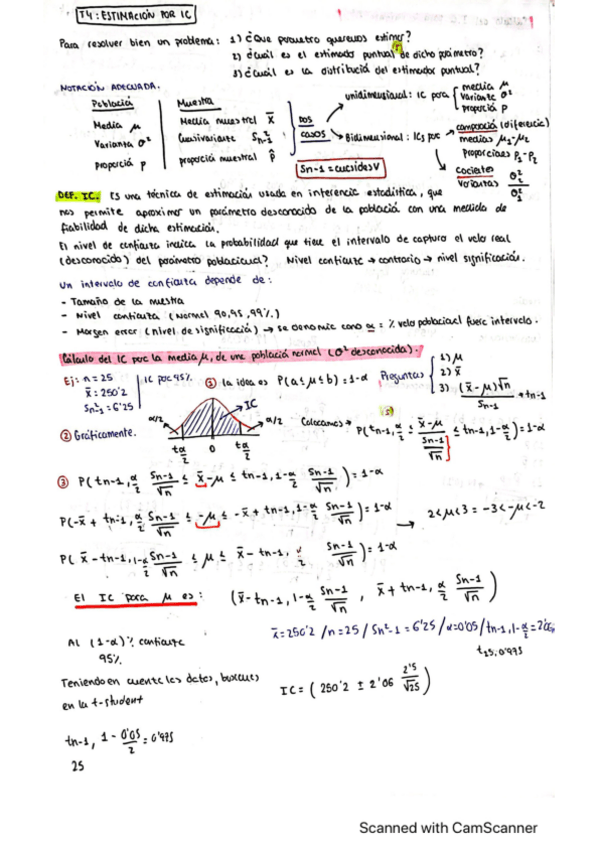 T4: ESTIMACIÓN POR IC
Para resolver bien un problema: 1) ¿Que parametro queremos estimar?
2) ¿cuál es el estimador puntual de dicho parámetro?
3) ¿Cuál es la distribució del estimador puntual?
NOTACIÓN ADECUADA.
Població
Media μ
Varianta σ²
Proporció p
Muestra
Media muestral x̄
Cuasivarianta S²n-1
proporció muestral p̂
DOS CASOS
unidimensional: IC para
media μ
varianta σ²
proporció p
Bidimensional: ICs por
comparació (diferencia)
medias μ1-μ2
Proporciones P1-P2
cocientes
Variantas σ²2/σ²1
Sn-1 = cuasidesv
DEF. IC. Es una técnica de estimación usada en inferencia estadística, que
nos permite aproximar un parámetro desconocido de la població con una medida de
fiabilidad de dicha estimación.
El nivel de confianta indica la probabilidad que tiene el intervalo de captura el valor real
(desconocido) del parámetro poblacional? Nivel confianta → contrario → nivel significación.
Un intervalo de confianta depende de:
- Tamaño de la muestra
- Nivel confianta (Normal 90,95,99%)
- Margen error (nivel de significació) → se denomina como α = % valo poblacional fuera intervalo.
Cálculo del IC para la media μ, de una població normal (σ² desconocida).
Ej: n = 25
x̄ = 250'2
S²n-1 = 6'25
IC para 95%
① la idea es P(a ≤ μ ≤ b) = 1-α
Preguntas
1) μ
2) x̄
3) (x̄-μ)√n / Sn-1 → tn-1
② Gráficamente.
α/2
IC
α/2
tα/2 0 tα/2
Colocamos →
P(tn-1, α/2 ≤ (x̄-μ)/(Sn-1/√n) ≤ tn-1, 1-α/2) = 1-α
③ P(tn-1, α/2 Sn-1/√n ≤ x̄-μ ≤ tn-1, 1-α/2 Sn-1/√n) = 1-α
P(-x̄ + tn-1, α/2 Sn-1/√n ≤ -μ ≤ -x̄ + tn-1, 1-α/2 Sn-1/√n) = 1-α → 2<μ<3 = -3<-μ<-2
P(x̄ - tn-1, 1-α/2 Sn-1/√n ≤ μ ≤ x̄ - tn-1, Sn-1/√n) = 1-α
El IC para μ es: (x̄ - tn-1, 1-α/2 Sn-1/√n , x̄ + tn-1, α/2 Sn-1/√n)
Al (1-α)% confianta
95%
x̄ = 250'2 / n = 25 / Sn²-1 = 6'25 / α = 0'05 / tn-1, 1-α/2 = 2'06
t25, 0'975
Teniendo en cuenta los datos, buscamos
en la t-student
IC = (250'2 ± 2'06 2'5/√25)
tn-1, 1 - 0'05/2 = 0'975
25
Scanned with CamScanner